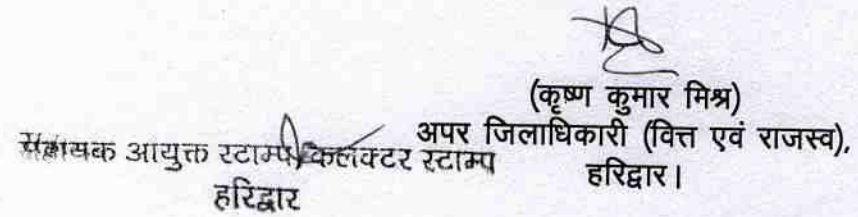 (कृष्ण कुमार मिश्र)
अपर जिलाधिकारी (वित्त एवं राजस्व),
हरिद्वार।
सहायक आयुक्त स्टाम्प/कलक्टर स्टाम्प
हरिद्वार